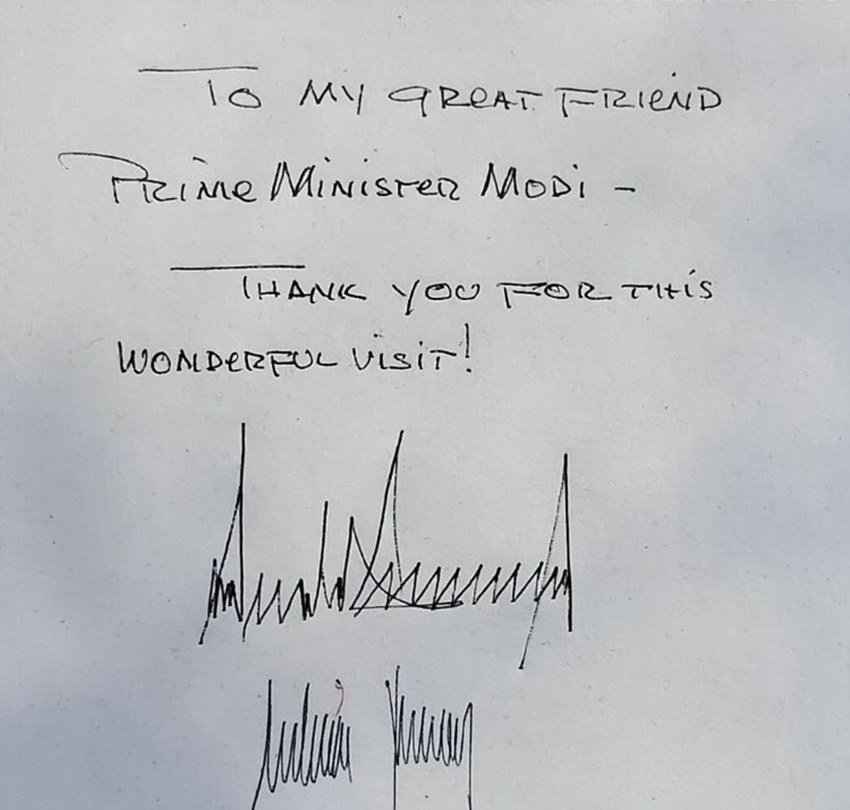 To My Great Friend
Prime Minister Modi –
Thank you for this
wonderful visit!